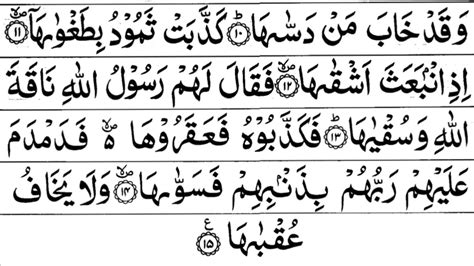 وَقَدْ خَابَ مَنْ دَسّٰىهَا ۝۱۰ كَذَّبَتْ ثَمُوْدُ بِطَغْوٰىهَاۤ ۝۱۱
اِذِ انْۢبَعَثَ اَشْقٰىهَا ۝۱۲ فَقَالَ لَهُمْ رَسُوْلُ اللّٰهِ نَاقَةَ
اللّٰهِ وَسُقْيٰهَا ۝۱۳ فَكَذَّبُوْهُ فَعَقَرُوْهَا ۵ فَدَمْدَمَ
عَلَيْهِمْ رَبُّهُمْ بِذَنْۢبِهِمْ فَسَوّٰىهَا ۝۱۴ وَلَا يَخَافُ
عُقْبٰهَا ۝۱۵ ع